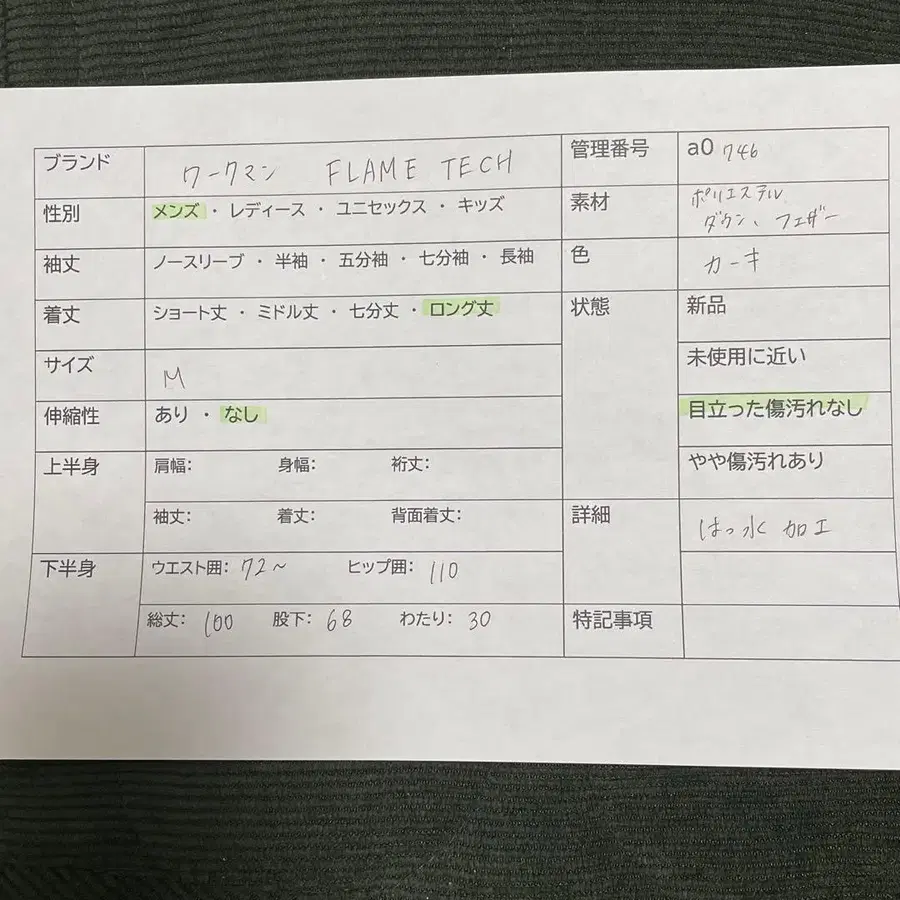 ブランド ワークマン FLAME TECH 管理番号 a0 746
性別 メンズ ・ レディース ・ ユニセックス ・ キッズ 素材 ポリエステル
ダウン、フェザー
袖丈 ノースリーブ ・ 半袖 ・ 五分袖 ・ 七分袖 ・ 長袖 色 カーキ
着丈 ショート丈 ・ ミドル丈 ・ 七分丈 ・ ロング丈 状態 新品
サイズ M 未使用に近い
伸縮性 あり ・ なし 目立った傷汚れなし
上半身 肩幅: 身幅: 裄丈: やや傷汚れあり
袖丈: 着丈: 背面着丈: 詳細 はっ水 加工
下半身 ウエスト囲: 72~ ヒップ囲: 110
総丈: 100 股下: 68 わたり: 30 特記事項